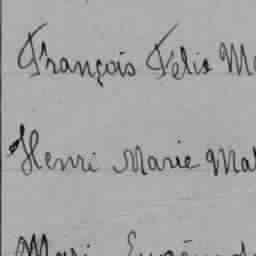 François Félix M
Henri Marie Mal
Mari